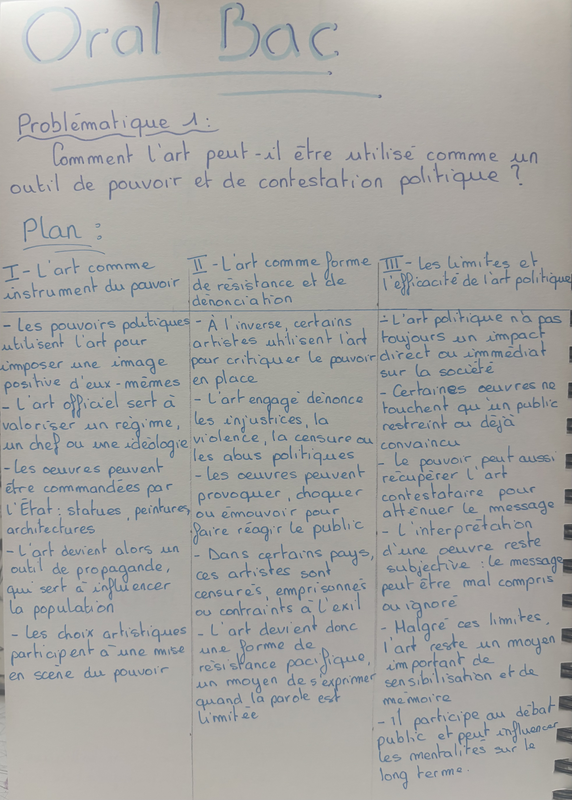 Oral Bac
Problématique 1 :
Comment l'art peut-il être utilisé comme un
outil de pouvoir et de contestation politique ?
Plan :
I - L'art comme
instrument du pouvoir
- Les pouvoirs politiques
utilisent l'art pour
imposer une image
positive d'eux-mêmes
- L'art officiel sert à
valoriser un régime,
un chef ou une idéologie
- Les oeuvres peuvent
être commandées par
l'État : statues, peintures,
architectures
- L'art devient alors un
outil de propagande,
qui sert à influencer
la population
- Les choix artistiques
participent à une mise
en scène du pouvoir
II - L'art comme forme
de résistance et de
dénonciation
- À l'inverse, certains
artistes utilisent l'art
pour critiquer le pouvoir
en place
- L'art engagé dénonce
les injustices, la
violence, la censure ou
les abus politiques
- Les oeuvres peuvent
provoquer, choquer
ou émouvoir pour
faire réagir le public
- Dans certains pays,
ces artistes sont
censurés, emprisonnés
ou contraints à l'exil
- L'art devient donc
une forme de
résistance pacifique,
un moyen de s'exprimer
quand la parole est
limitée
III - Les limites et
l'efficacité de l'art politique
- L'art politique n'a pas
toujours un impact
direct ou immédiat
sur la société
- Certaines oeuvres ne
touchent qu'un public
restreint ou déjà
convaincu
- Le pouvoir peut aussi
récupérer l'art
contestataire pour
atténuer le message
- L'interprétation
d'une oeuvre reste
subjective : le message
peut être mal compris
ou ignoré
- Malgré ces limites,
l'art reste un moyen
important de
sensibilisation et de
mémoire
- Il participe au débat
public et peut influencer
les mentalités sur le
long terme.